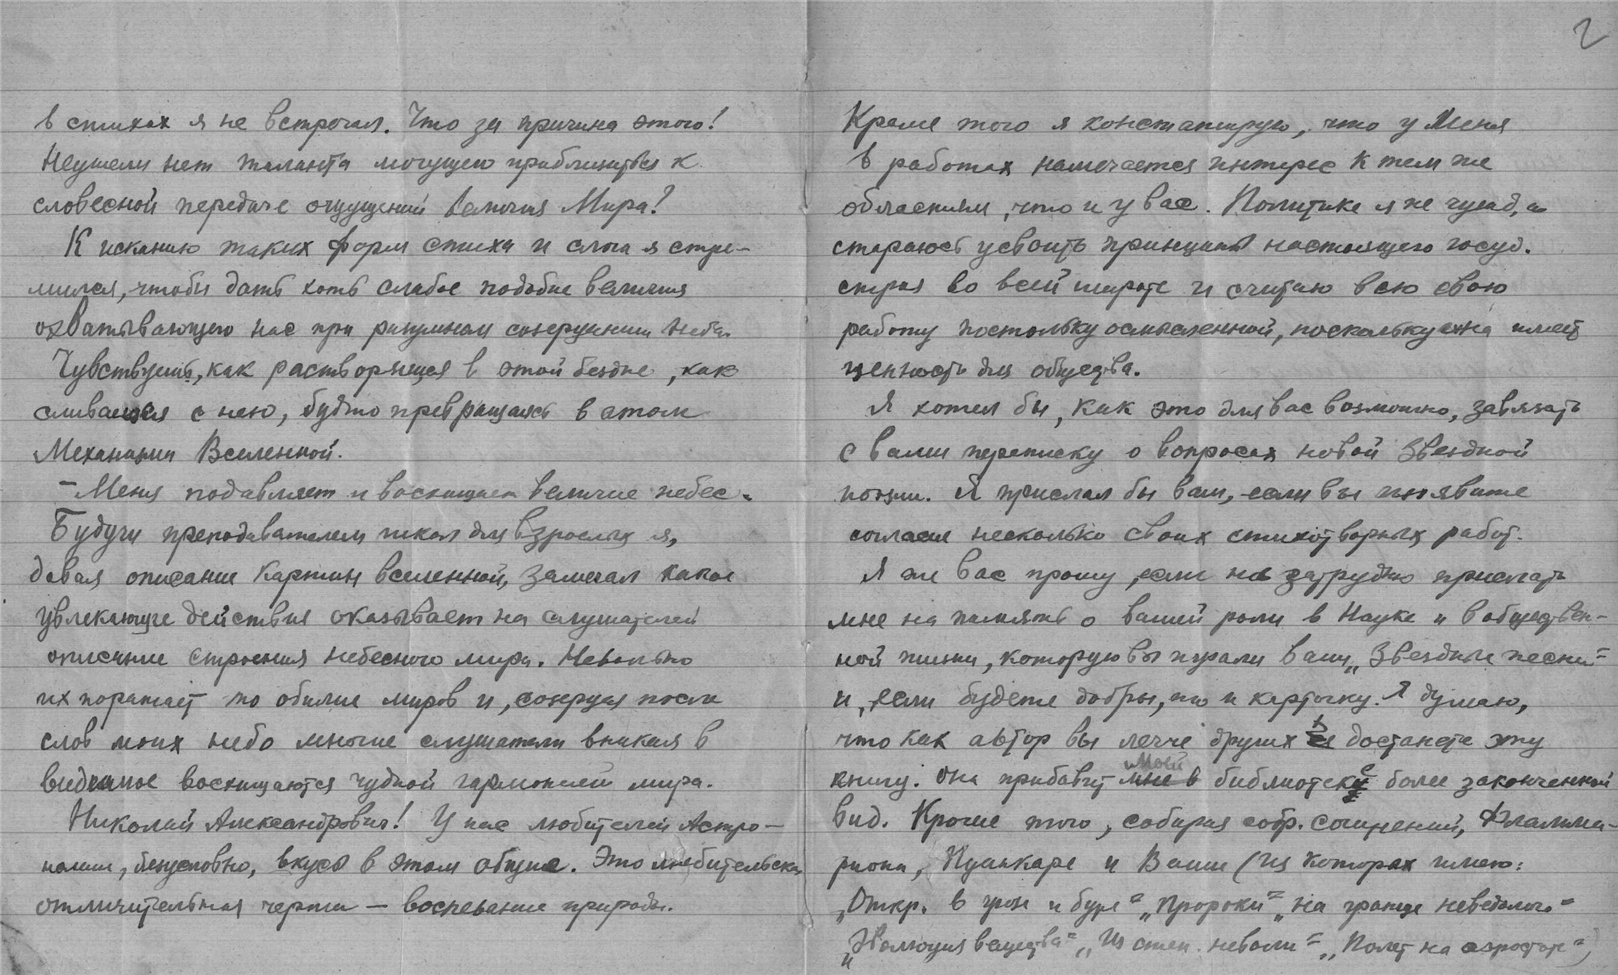 в стихах я не встречал. Что за причина этого!
Неужели нет таланта могущего приблизиться к
словесной передаче ощущений величия Мира?
К исканию таких форм стиха и слога я стре-
мился, чтобы дать хоть слабое подобие величия
охватывающего нас при разумном созерцании неба.
Чувствуешь, как растворяешься в этой бездне, как
сливаешься с нею, будто превращаясь в атом
Механизма Вселенной.
— Меня подавляет и восхищает величие небес.
Будучи преподавателем школ для взрослых я,
давая описание картин вселенной, замечал какое
увлекающее действия оказывает на слушателей
описание строения небесного мира. Невольно
их поражает то обилие миров и, созерцая после
слов моих небо многие слушатели вникая в
видимое восхищаются чудной гармонией мира.
Николай Александрович! У нас любителей Астро-
номии, безусловно, вкусо в этом общие. Это любительская
отличительная черта — воспевание природы.
2
Кроме того я констатирую, что у Меня
в работах намечается интерес к тем же
областям, что и у вас. Политике я не чужд, а
стараюсь усвоить принципы настоящего госуд.
строя во всей широте и считаю всю свою
работу постольку осмысленной, поскольку она имеет
ценность для общества.
Я хотел бы, как это для вас возможно, завязать
с вами переписку о вопросах новой Звездной
поэзии. Я прислал бы вам, если вы изъявите
согласие несколько своих стихотворных работ.
Я же вас прошу, если не затрудню прислать
мне на память о вашей роли в Науке и в обществен-
ной жизни, которую вы играли ваши „Звездные песни"
и, если будете добры, то и карточку. Я думаю,
что как автор вы легче других достанете эту
книгу. Она прибавит моей библиотеке более законченный
вид. Кроме того, собирая собр. сочинений, Фламма-
риона, Пуанкаре и Ваши (из которых имею:
„Откр. в грозе и буре" „Пророки" „на границе неведомого"
„Эволюция вещества" „Из стен неволи" „Полет на аэростате",